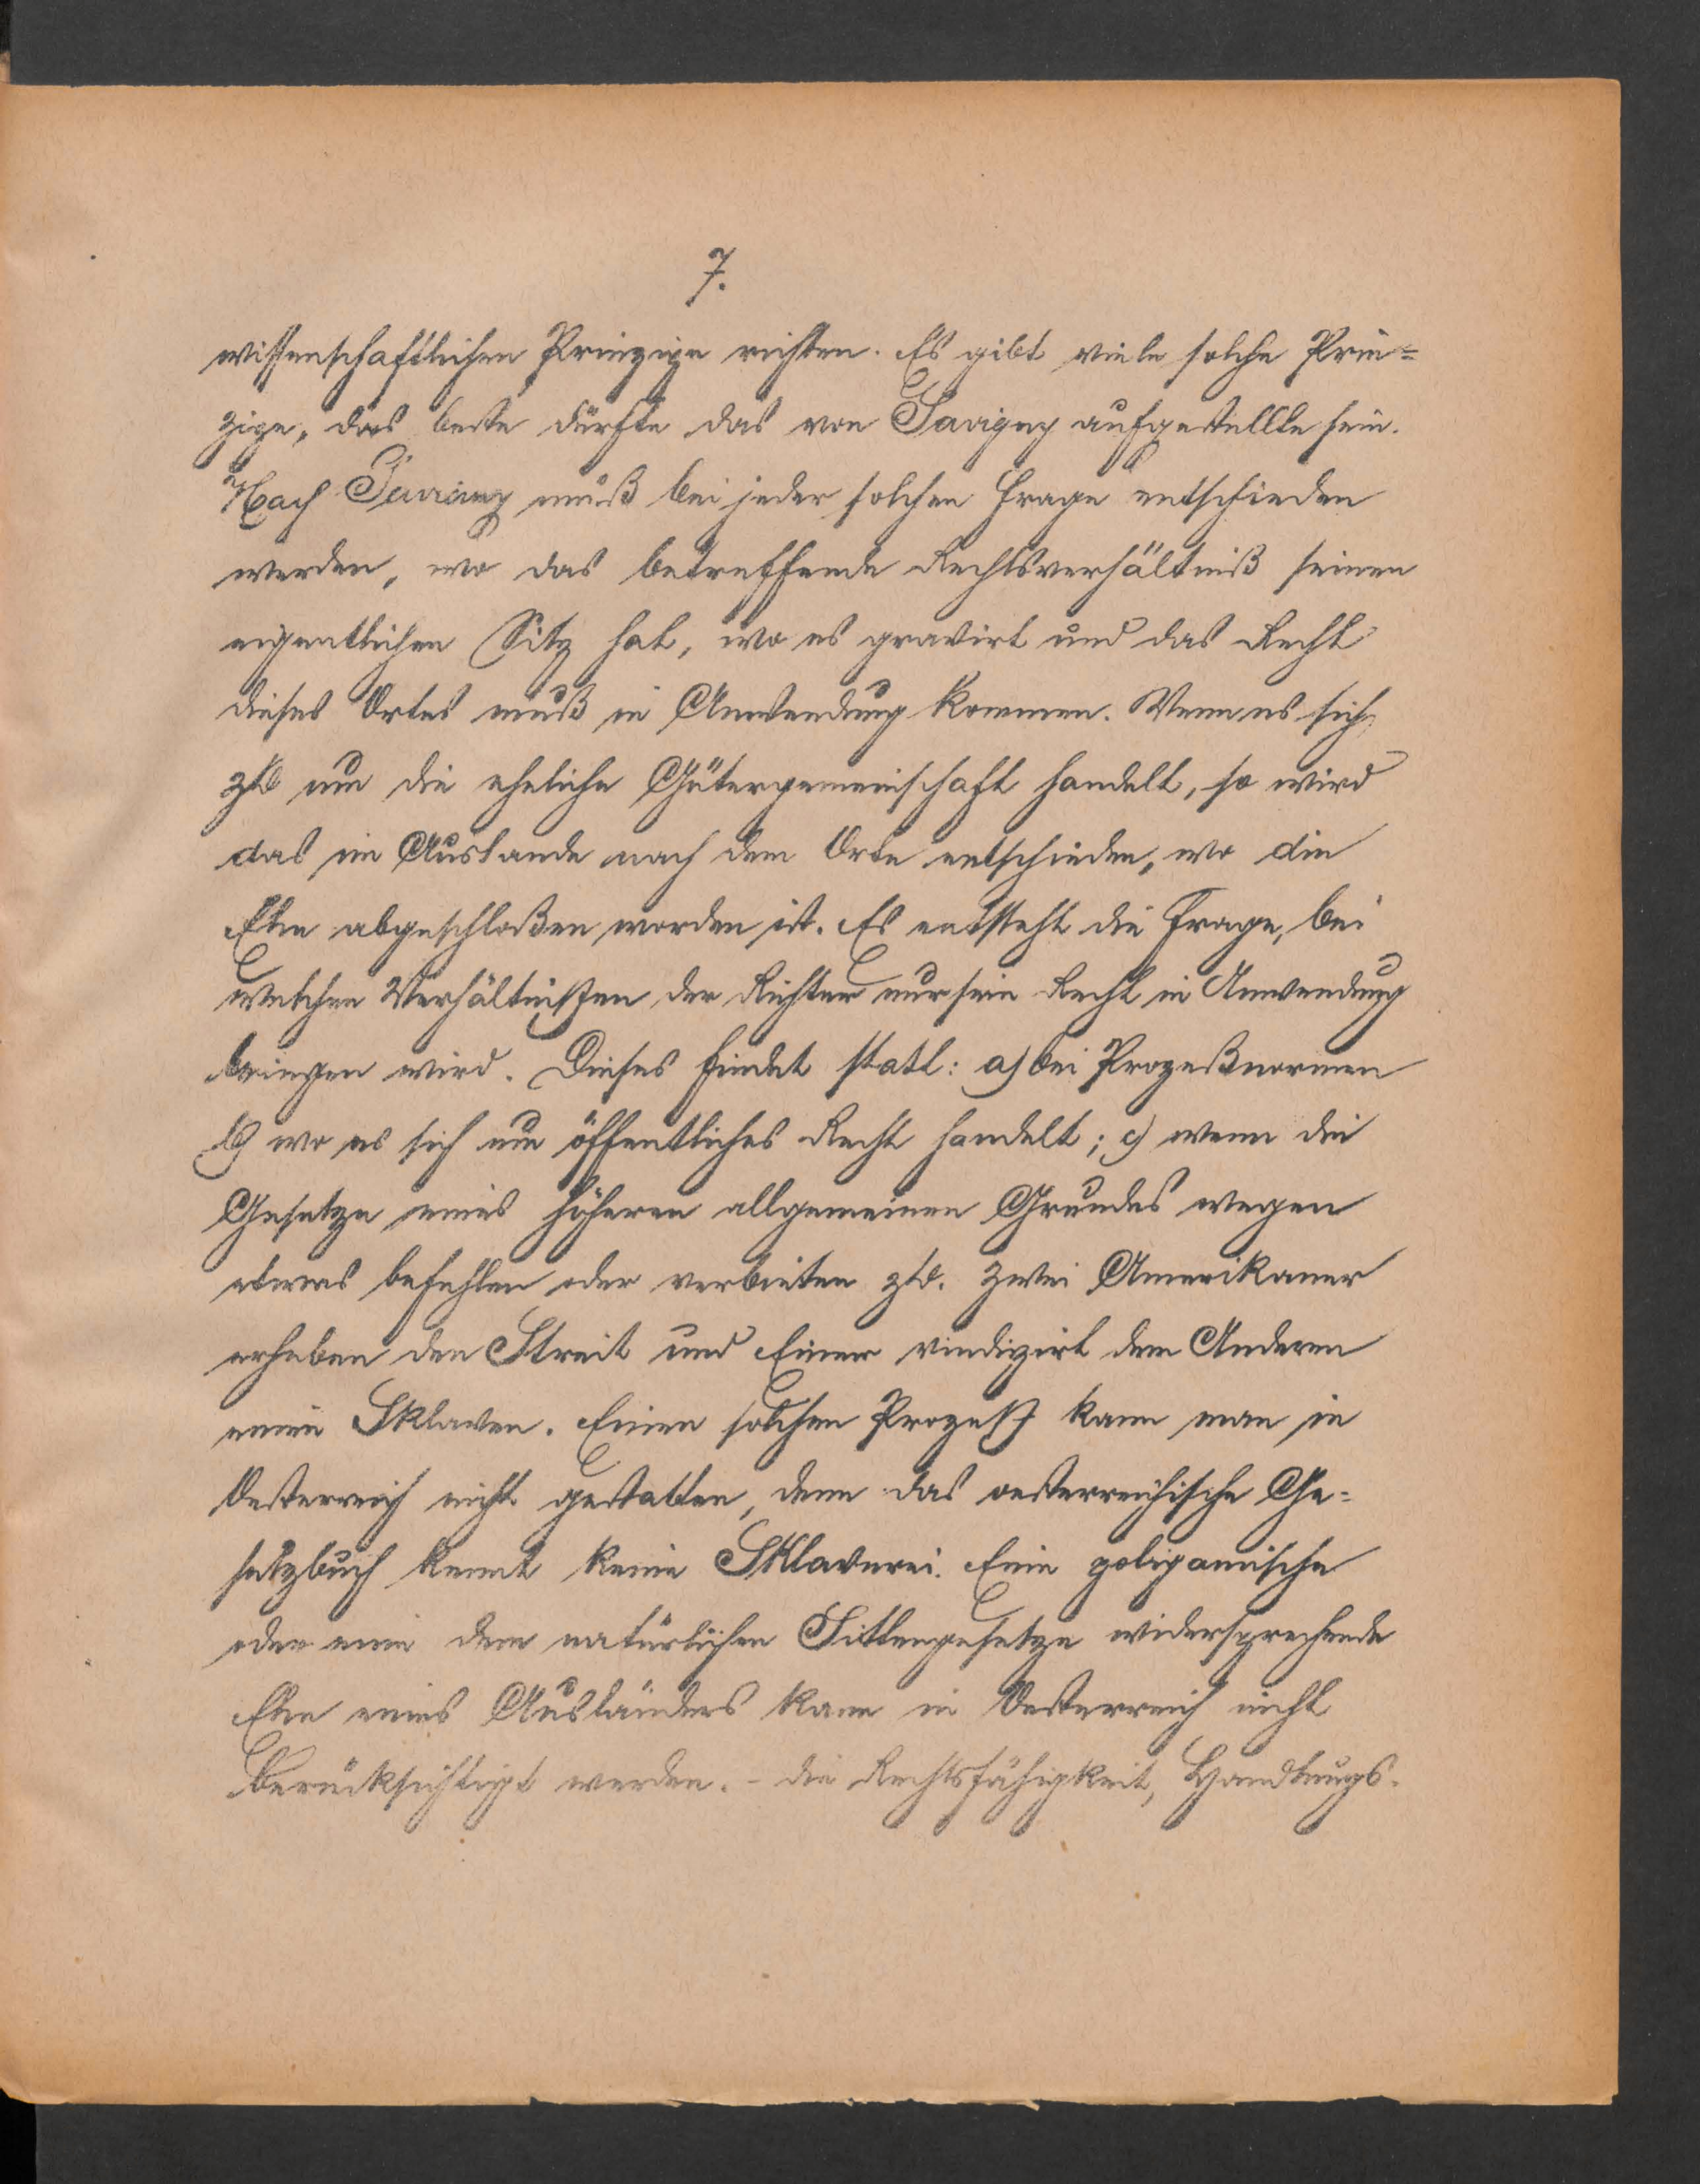 7.
wissenschaftlichen Prinzipe richten. Es gibt viele solche Prin=
zipe, das beste dürfte das von Savigny aufgestellte sein.
Nach Savigny muß bei jeder solchen Frage entschieden
werden, wo das betreffende Rechtsverhältniß seinen
eigentlichen Sitz hat, wo es gravirt und das Recht
dieses Ortes muß in Anwendung kommen. Wenn es sich
zB um die eheliche Gütergemeinschaft handelt, so wird
das im Auslande nach dem Orte entschieden, wo die
Ehe abgeschloßen worden ist. Es entsteht die Frage, bei
welchen Verhältnißen der Richter nur sein Recht in Anwendung
bringen wird. Dieses findet statt: a) bei Prozeßnormen
b) wo es sich um öffentliches Recht handelt; c) wenn die
Gesetze eines höheren allgemeinen Grundes wegen
etwas befehlen oder verbieten zB. zwei Amerikaner
erheben den Streit und Einer vindizirt dem Anderen
einen Sklaven. Einen solchen Prozeß kann man in
Oesterreich nicht gestatten, denn das oesterreichische Ge=
setzbuch kennt keine Sklaverei. Eine poligamische
oder eine dem natürlichen Sittengesetze widersprechende
Ehe eines Ausländers kann in Oesterreich nicht
berücksichtigt werden. – die Rechtsfähigkeit, Handlungs-